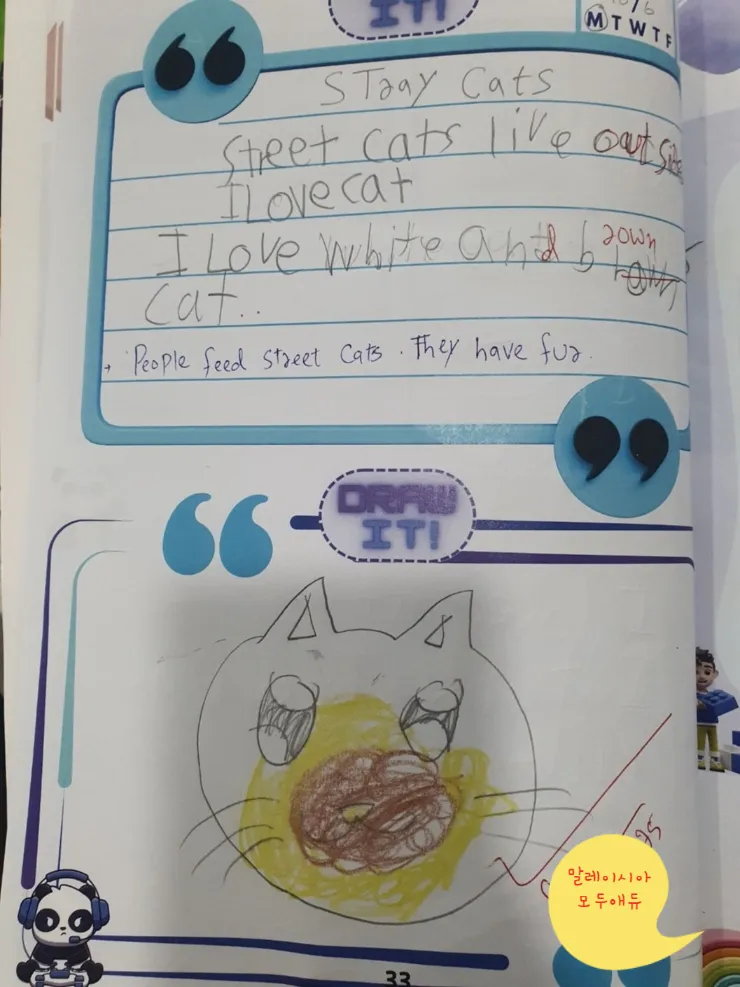 IT!
M T W T F
Stray Cats
Street cats live outside
I Love cat
I Love white and brown
cat..
People feed street cats. They have fur.
DRAW
IT!
말레이시아
모두애듀
33